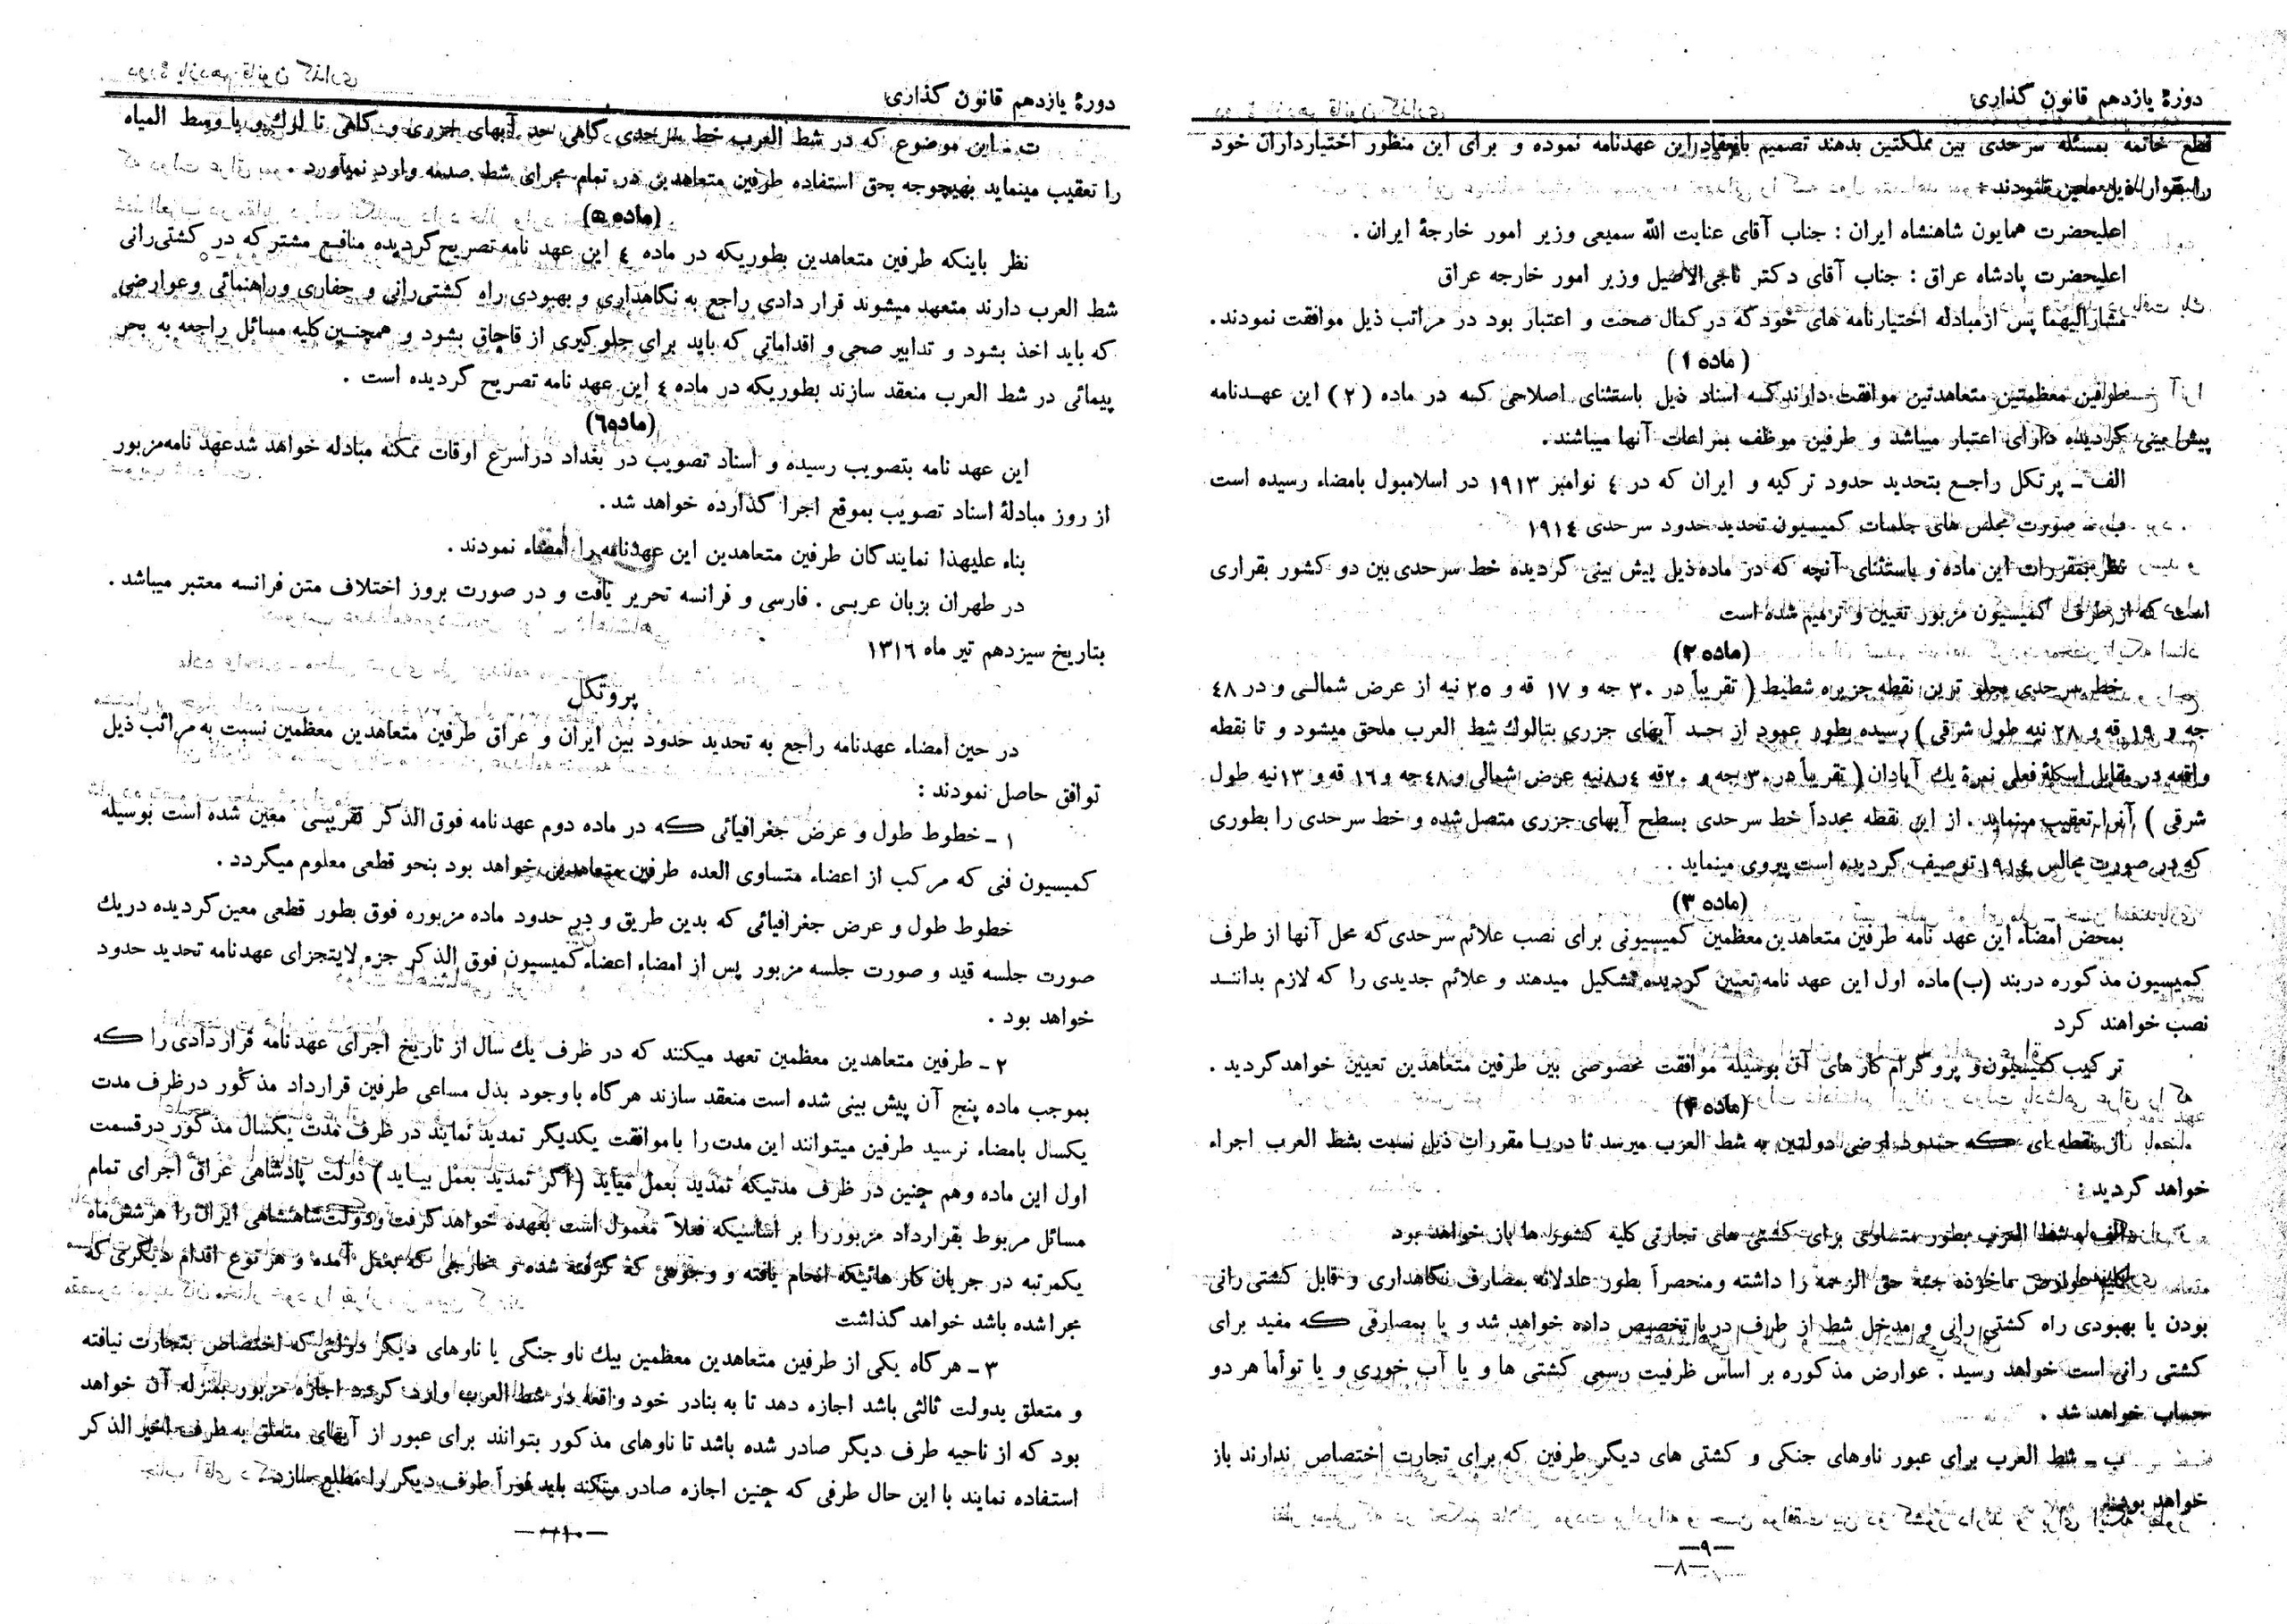 دورهٔ یازدهم قانون گذاری
قطع خاتمه بمسئله سرحدی بین مملکتین بدهند تصمیم بانعقاد این عهدنامه نموده و برای این منظور اختیارداران خود
را بقرار ذیل معین نمودند :
اعلیحضرت همایون شاهنشاه ایران : جناب آقای عنایت الله سمیعی وزیر امور خارجهٔ ایران .
اعلیحضرت پادشاه عراق : جناب آقای دکتر ناجی‌الاصیل وزیر امور خارجه عراق
مشارالیهما پس ازمبادله اختیارنامه های خود که در کمال صحت و اعتبار بود در مراتب ذیل موافقت نمودند.
( ماده ۱ )
طرفین معظمتین متعاهدتین موافقت دارند که اسناد ذیل باستثنای اصلاحی که در ماده ( ۲ ) این عهدنامه
پیش بینی گردیده دارای اعتبار میباشد و طرفین موظف بمراعات آنها میباشند.
الف ـ پرتکل راجع بتحدید حدود ترکیه و ایران که در ٤ نوامبر ۱۹۱۳ در اسلامبول بامضاء رسیده است
ب ـ صورت مجلس های جلسات کمیسیون تحدید حدود سرحدی ۱۹۱٤
نظر بمقررات این ماده و باستثنای آنچه که در ماده ذیل پیش بینی گردیده خط سرحدی بین دو کشور بقراری
است که از طرف کمیسیون مزبور تعیین و ترمیم شده است
(ماده ۲)
خط سرحدی بجلو ترین نقطه جزیره شطیط ( تقریباً در ۳۰ جه و ۱۷ قه و ۲۵ نیه از عرض شمالی و در ٤۸
جه و ۱۹ قه و ۲۸ نیه طول شرقی ) رسیده بطور عمود از حد آبهای جزری بتالوك شط العرب ملحق میشود و تا نقطه
واقعه در مقابل اسکلهٔ فعلی نمرهٔ یك آبادان ( تقریباً در ۳۰ جه و ۲۰ قه و ۸ر٤ نیه عرض شمالی و ٤۸ جه و ۱٦ قه و ۱۳ نیه طول
شرقی ) آنرا تعقیب مینماید . از این نقطه مجدداً خط سرحدی بسطح آبهای جزری متصل شده و خط سرحدی را بطوری
که در صورت مجالس ۱۹۱٤ توصیف گردیده است پیروی مینماید .
(ماده ۳)
بمحض امضاء این عهد نامه طرفین متعاهدین معظمین کمیسیونی برای نصب علائم سرحدی که محل آنها از طرف
کمیسیون مذکوره دربند (ب) ماده اول این عهد نامه تعیین گردیده تشکیل میدهند و علائم جدیدی را که لازم بدانند
نصب خواهند کرد
ترکیب کمیسیون و پروگرام کار های آن بوسیله موافقت مخصوصی بین طرفین متعاهدین تعیین خواهد گردید .
(ماده ٤)
از نقطه ای که حدود ارضی دولتین به شط العرب میرسد تا دریا مقررات ذیل نسبت بشط العرب اجراء
خواهد گردید :
الف ـ شط العرب بطور متساوی برای کشتی های تجارتی کلیه کشور ها باز خواهد بود
کلیه عوارض ماخوذه جنبه حق الزحمه را داشته و منحصراً بطور عادلانه بمصارف نگاهداری و قابل کشتی رانی
بودن یا بهبودی راه کشتی رانی و مدخل شط از طرف دریا تخصیص داده خواهد شد و یا بمصارفی که مفید برای
کشتی رانی است خواهد رسید . عوارض مذکوره بر اساس ظرفیت رسمی کشتی ها و یا آب خوری و یا توأماً هر دو
حساب خواهد شد .
ب ـ شط العرب برای عبور ناوهای جنگی و کشتی های دیگر طرفین که برای تجارت اختصاص ندارند باز
خواهد بود
—۹—
—۸—
دورهٔ یازدهم قانون گذاری
ت ـ این موضوع که در شط العرب خط سرحدی گاهی حد آبهای جزری و گاهی تا لوك و یا وسط المیاه
را تعقیب مینماید بهیچوجه بحق استفاده طرفین متعاهدین در تمام مجرای شط صدمه وارد نمیآورد .
(ماده ۵)
نظر باینکه طرفین متعاهدین بطوریکه در ماده ٤ این عهد نامه تصریح گردیده منافع مشترکه در کشتی‌رانی
شط العرب دارند متعهد میشوند قرار دادی راجع به نگاهداری و بهبودی راه کشتی‌رانی و حفاری و راهنمائی و عوارضی
که باید اخذ بشود و تدابیر صحی و اقداماتی که باید برای جلوگیری از قاچاق بشود و همچنین کلیه مسائل راجعه به بحر
پیمائی در شط العرب منعقد سازند بطوریکه در ماده ٤ این عهد نامه تصریح گردیده است .
(ماده ٦)
این عهد نامه بتصویب رسیده و اسناد تصویب در بغداد در اسرع اوقات ممکنه مبادله خواهد شد عهد نامه مزبور
از روز مبادلهٔ اسناد تصویب بموقع اجرا گذارده خواهد شد .
بناء علیهذا نمایندگان طرفین متعاهدین این عهدنامه را امضاء نمودند .
در طهران بزبان عربی . فارسی و فرانسه تحریر یافت و در صورت بروز اختلاف متن فرانسه معتبر میباشد .
بتاریخ سیزدهم تیر ماه ۱۳۱٦
پروتکل
در حین امضاء عهدنامه راجع به تحدید حدود بین ایران و عراق طرفین متعاهدین معظمین نسبت به مراتب ذیل
توافق حاصل نمودند :
۱ ـ خطوط طول و عرض جغرافیائی که در ماده دوم عهدنامه فوق الذکر تقریبی معین شده است بوسیله
کمیسیون فنی که مرکب از اعضاء متساوی العده طرفین متعاهدین خواهد بود بنحو قطعی معلوم میگردد .
خطوط طول و عرض جغرافیائی که بدین طریق و در حدود ماده مزبوره فوق بطور قطعی معین گردیده در یك
صورت جلسه قید و صورت جلسه مزبور پس از امضاء اعضاء کمیسیون فوق الذکر جزء لایتجزای عهدنامه تحدید حدود
خواهد بود .
۲ ـ طرفین متعاهدین معظمین تعهد میکنند که در ظرف یك سال از تاریخ اجرای عهدنامه قراردادی را که
بموجب ماده پنج آن پیش بینی شده است منعقد سازند هرگاه با وجود بذل مساعی طرفین قرارداد مذکور در ظرف مدت
یکسال بامضاء نرسید طرفین میتوانند این مدت را با موافقت یکدیگر تمدید نمایند در ظرف مدت یکسال مذکور در قسمت
اول این ماده و هم چنین در ظرف مدتیکه تمدید بعمل میآید (اگر تمدید بعمل بیاید) دولت پادشاهی عراق اجرای تمام
مسائل مربوط بقرارداد مزبور را بر اساسیکه فعلاً معمول است بعهده خواهد گرفت و دولت شاهنشاهی ایران را هر شش‌ماه
یکمرتبه در جریان کار هائیکه انجام یافته و وجوهی که گرفته شده و مخارجی که بعمل آمده و هر نوع اقدام دیگری که
مجرا شده باشد خواهد گذاشت
۳ ـ هرگاه یکی از طرفین متعاهدین معظمین بیك ناو جنگی یا ناوهای دیگر دولتی که اختصاص بتجارت نیافته
و متعلق بدولت ثالثی باشد اجازه دهد تا به بنادر خود واقعه در شط العرب وارد گردد اجازه مزبور بمنزله آن خواهد
بود که از ناحیه طرف دیگر صادر شده باشد تا ناوهای مذکور بتوانند برای عبور از آبهای متعلق به طرف اخیر الذکر
استفاده نمایند با این حال طرفی که چنین اجازه صادر میکند باید فوراً طرف دیگر را مطلع سازد